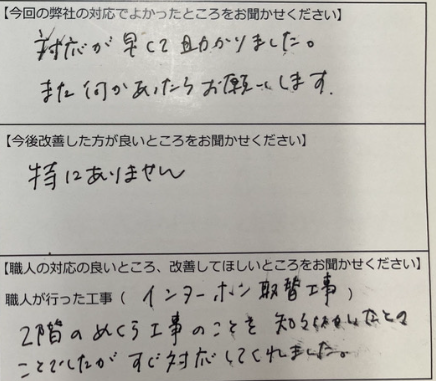 【今回の弊社の対応でよかったところをお聞かせください】
対応が早くて助かりました。
また何かあったらお願いします.
【今後改善した方が良いところをお聞かせください】
特にありません
【職人の対応の良いところ、改善してほしいところをお聞かせください】
職人が行った工事（インターホン取替工事）
2階のめくら工事のことを知らなかったとの
ことでしたがすぐ対応してくれました。